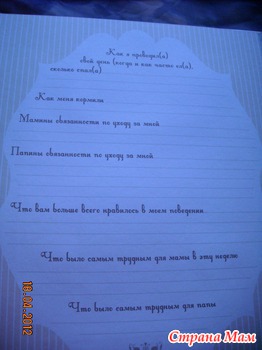 Как я проводил(а)
свой день (когда и как часто ел(а),
сколько спал(а)
Как меня кормили
Мамины обязанности по уходу за мной
Папины обязанности по уходу за мной
Что вам больше всего нравилось в моем поведении
Что было самым трудным для мамы в эту неделю
Что было самым трудным для папы
Страна Мам